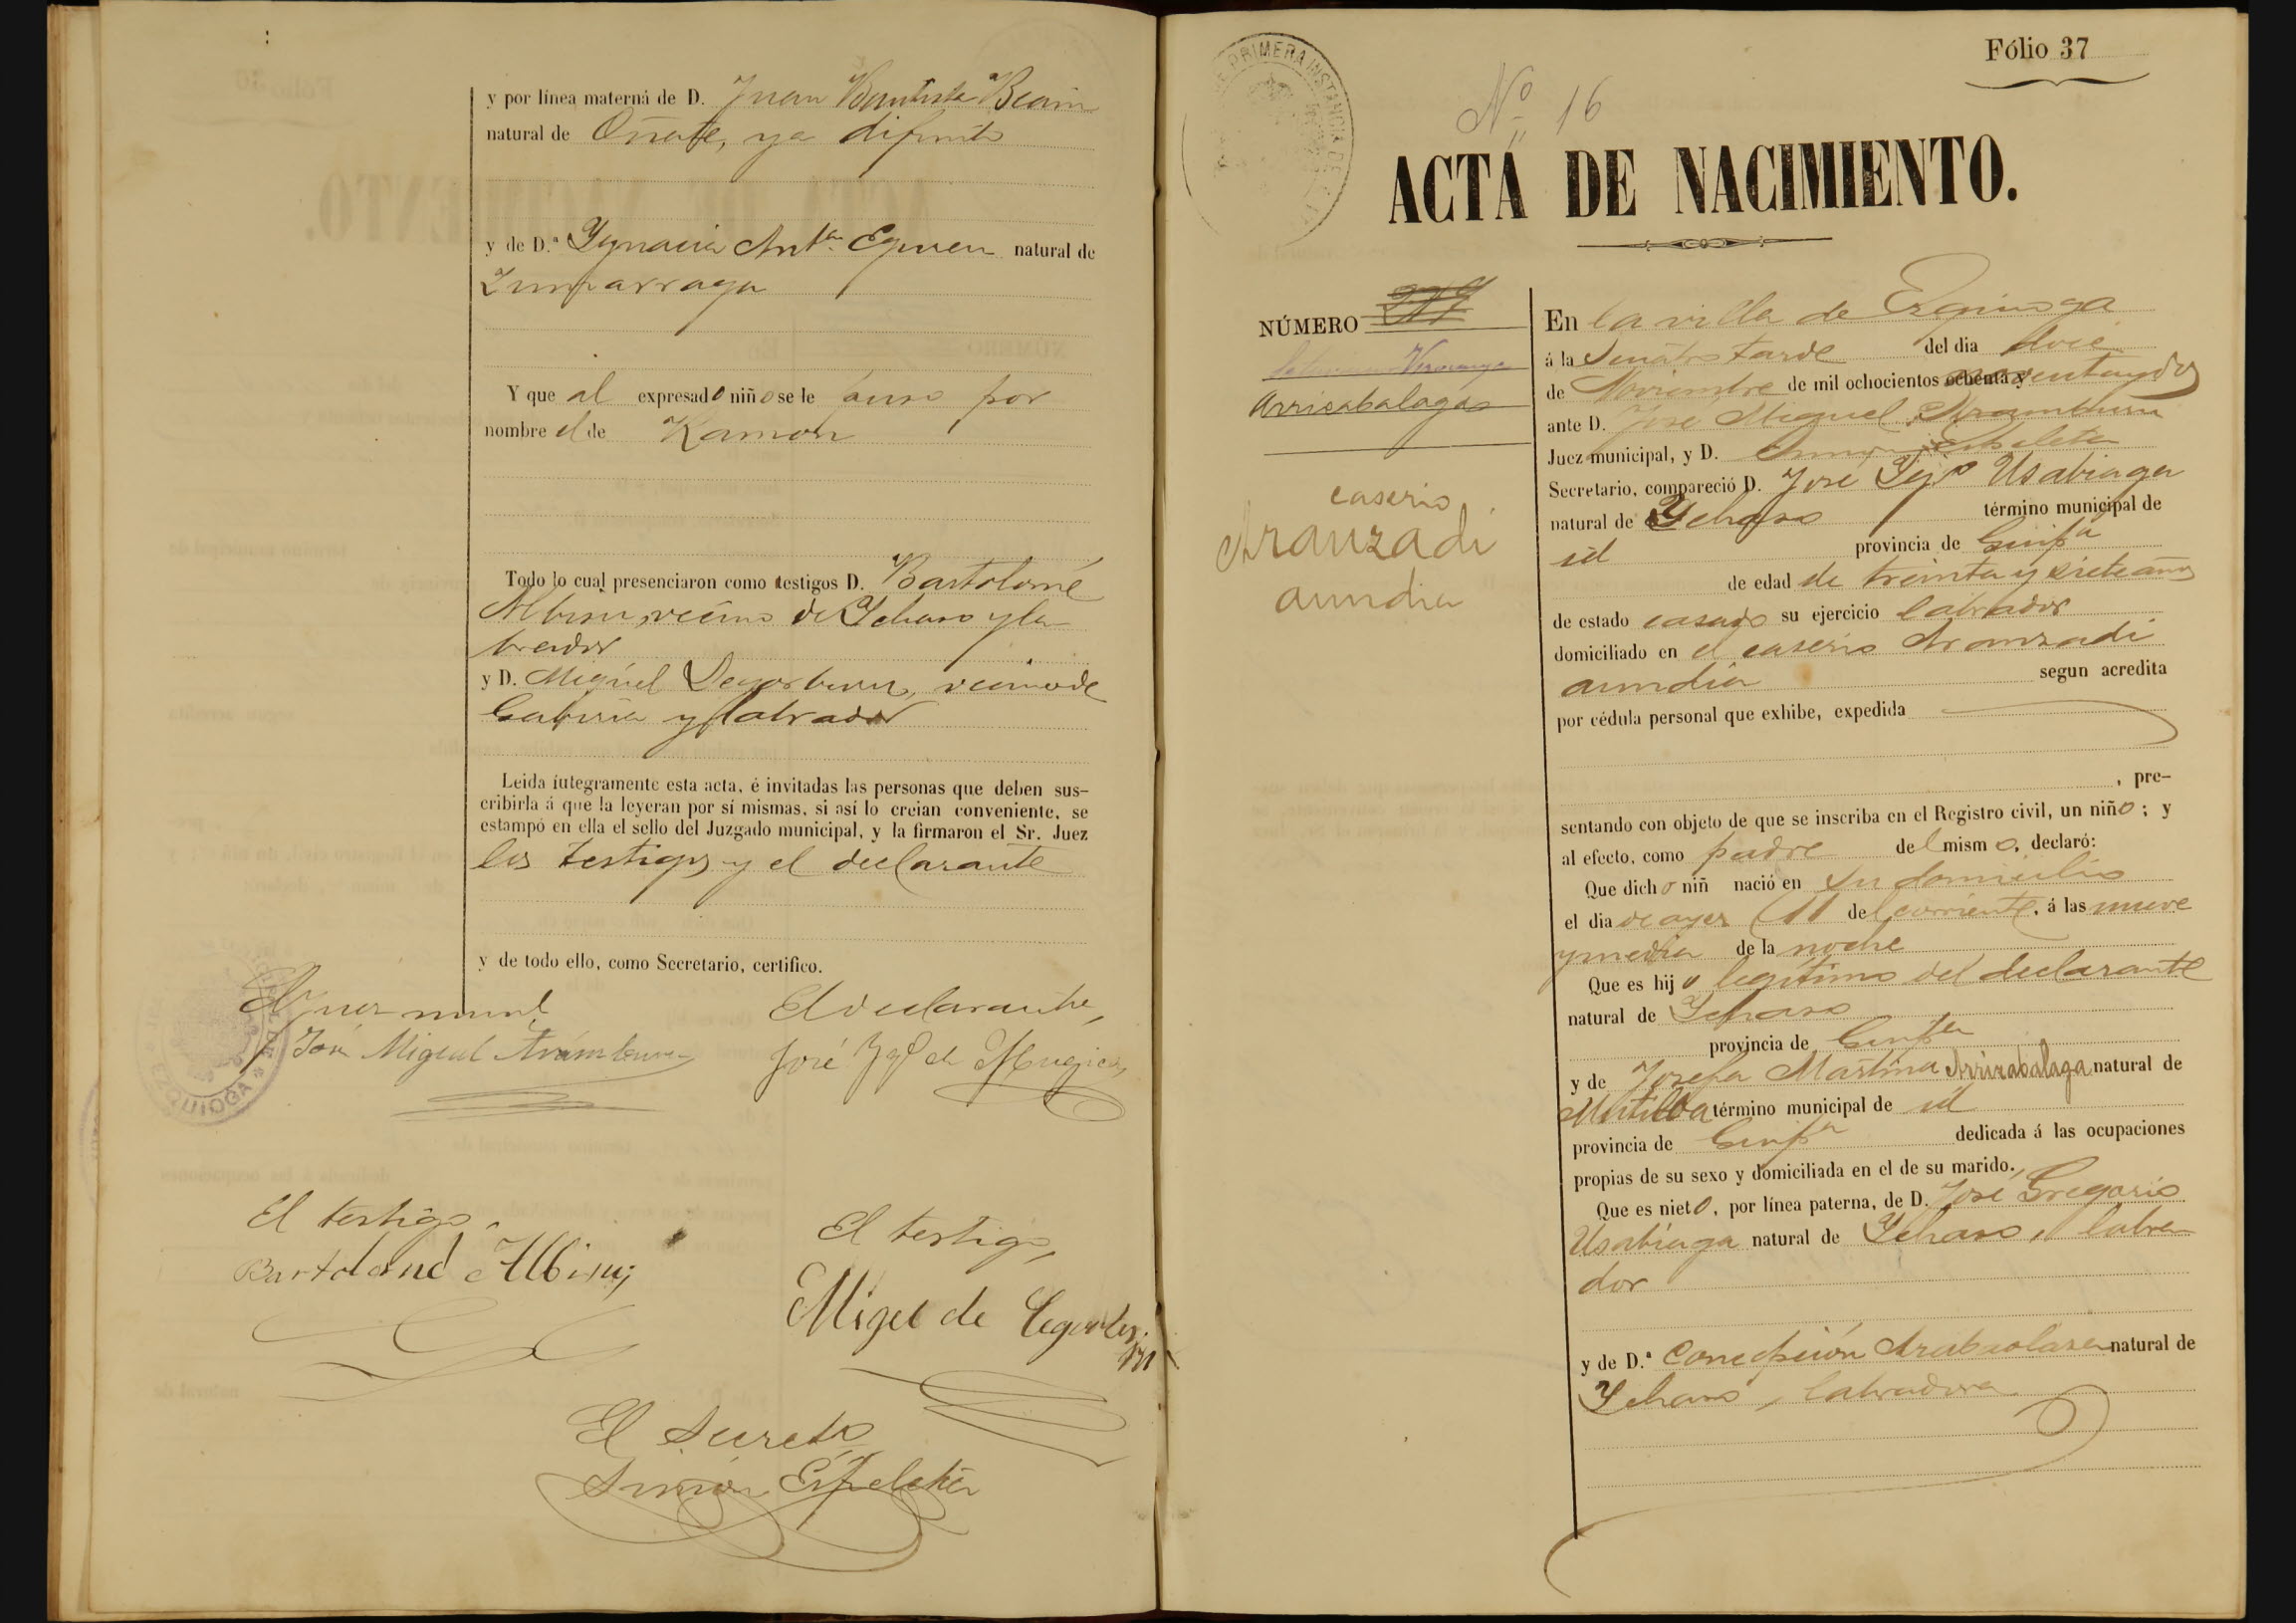 y por línea materna de D. Juan Bautista Beain
natural de Oñate, ya difunto
y de D.ª Ygnacia Ant.ª Eguren natural de
Zumarraga
Y que al expresado niño se le puso por
nombre el de Ramon
Todo lo cual presenciaron como testigos D. Bartolomé
Albisu, vecino de Ychaso y la-
brador
y D. Miguel Legorburu, vecino de
Gabiria y labrador
Leida íutegramente esta acta, é invitadas las personas que deben sus-
cribirla á que la leyeran por sí mismas, si así lo creian conveniente, se
estampó en ella el sello del Juzgado municipal, y la firmaron el Sr. Juez
los testigos y el declarante
y de todo ello, como Secretario, certifico.
El Juez munl.
José Miguel Arámburu
El declarante,
José Ygº de Mugica
EZQUIOGA
El testigo,
Bartolomé Albisu
El testigo,
Miguel de Legorbu
ru
El Secretº
Simón Espeleta
Fólio 37
DE PRIMERA INSTANCIA DE
Nº 16
ACTA DE NACIMIENTO.
NÚMERO
Arrisabalagas
caserio
Aranzadi
aundia
En la villa de Ezquioga
á la s cuatro tarde del dia doce
de Noviembre de mil ochocientos ochenta y noventa y dos
ante D. José Miguel Aramburu
Juez municipal, y D. Simon Espeleta
Secretario, compareció D. José Ygº Usabiaga
natural de Ychaso término municipal de
id provincia de Guipª
de edad de treinta y siete años
de estado casado su ejercicio labrador
domiciliado en el caserio Aranzadi
aundia segun acredita
por cédula personal que exhibe, expedida
, pre-
sentando con objeto de que se inscriba en el Registro civil, un niño; y
al efecto, como padre del mismo, declaró:
Que dicho niñ nació en su domicilio
el dia de ayer 11 del corriente, á las nueve
y media de la noche
Que es hijo legítimo del declarante
natural de Ychaso
provincia de Guipª
y de Josefa Martina Arrizabalaga natural de
Mutiloa término municipal de id
provincia de Guipª dedicada á las ocupaciones
propias de su sexo y domiciliada en el de su marido.
Que es nieto, por línea paterna, de D. José Gregorio
Usabiaga natural de Ychaso, labra-
dor
y de D.ª Concepción Arabaolaza natural de
Ychaso, labradora